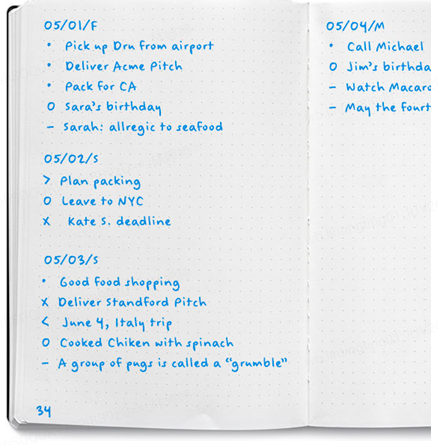 05/01/F
• Pick up Dru from airport
• Deliver Acme Pitch
• Pack for CA
O Sara's birthday
– Sarah: allregic to seafood
05/02/S
> Plan packing
O Leave to NYC
x Kate S. deadline
05/03/S
• Good food shopping
x Deliver Standford Pitch
< June 4, Italy trip
O Cooked Chiken with spinach
– A group of pugs is called a "grumble"
34
05/04/M
• Call Michael
O Jim's birthda
– Watch Macaro
– May the fourt